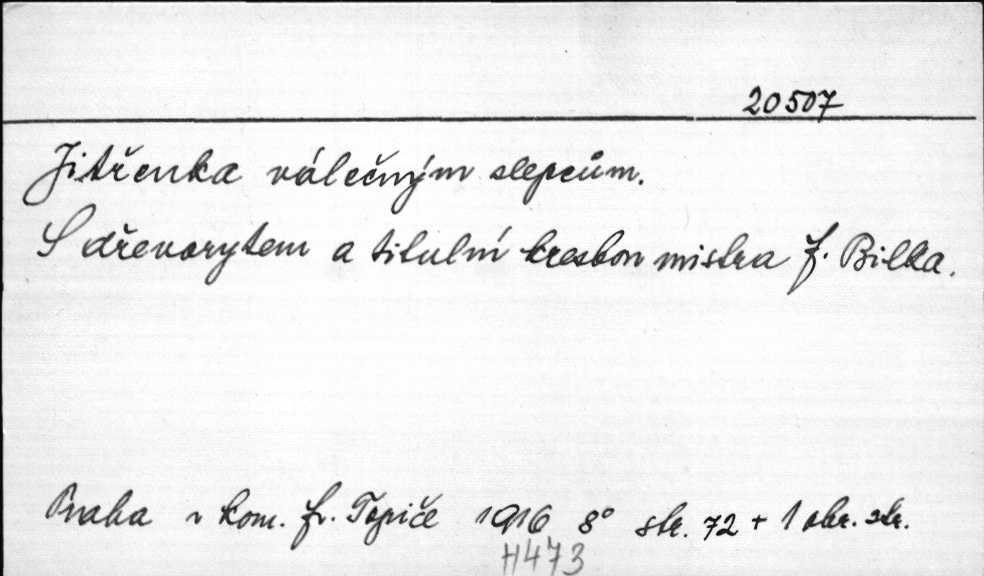 20507
Jitřenka válečným slepcům.
S dřevorytem a titulní kresbou mistra F. Bílka.
Praha v kom. Fr. Topiče 1916 8° str. 72 + 1 obr. str.
H473